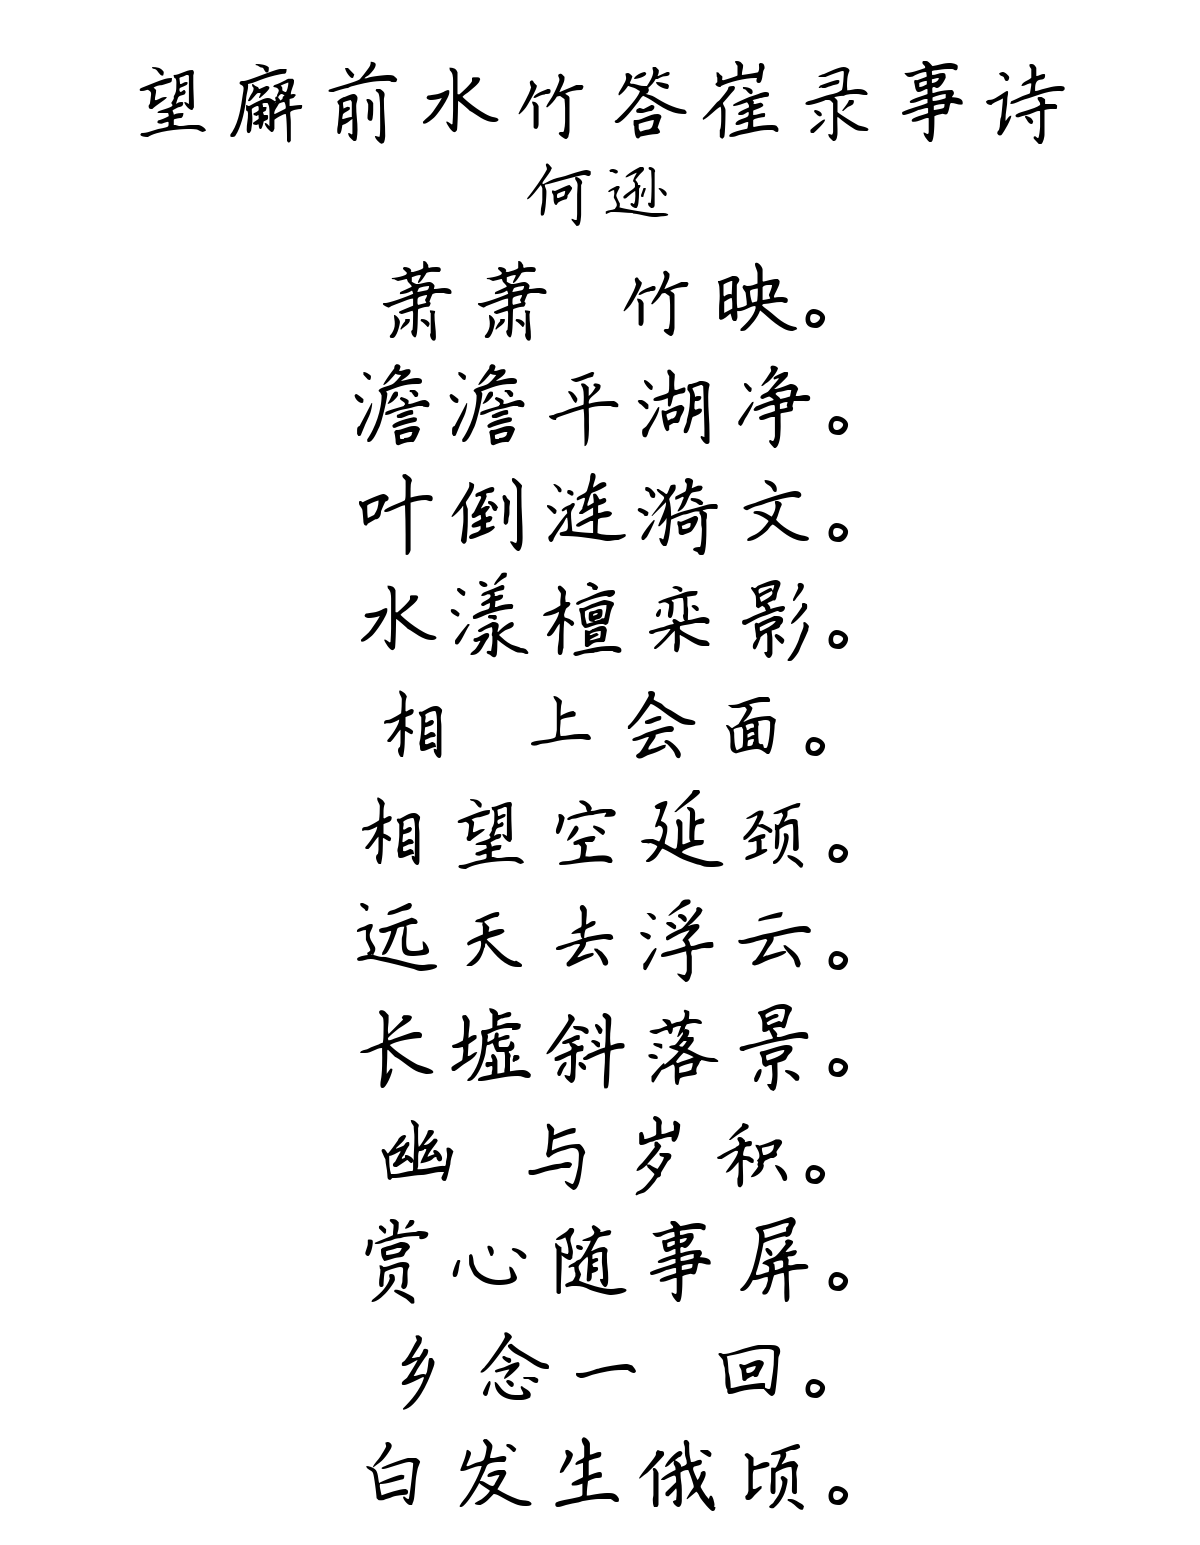 望廨前水竹答崔录事诗
何逊
萧萧 竹映。
澹澹平湖净。
叶倒涟漪文。
水漾檀栾影。
相 上会面。
相望空延颈。
远天去浮云。
长墟斜落景。
幽 与岁积。
赏心随事屏。
乡念一 回。
白发生俄顷。